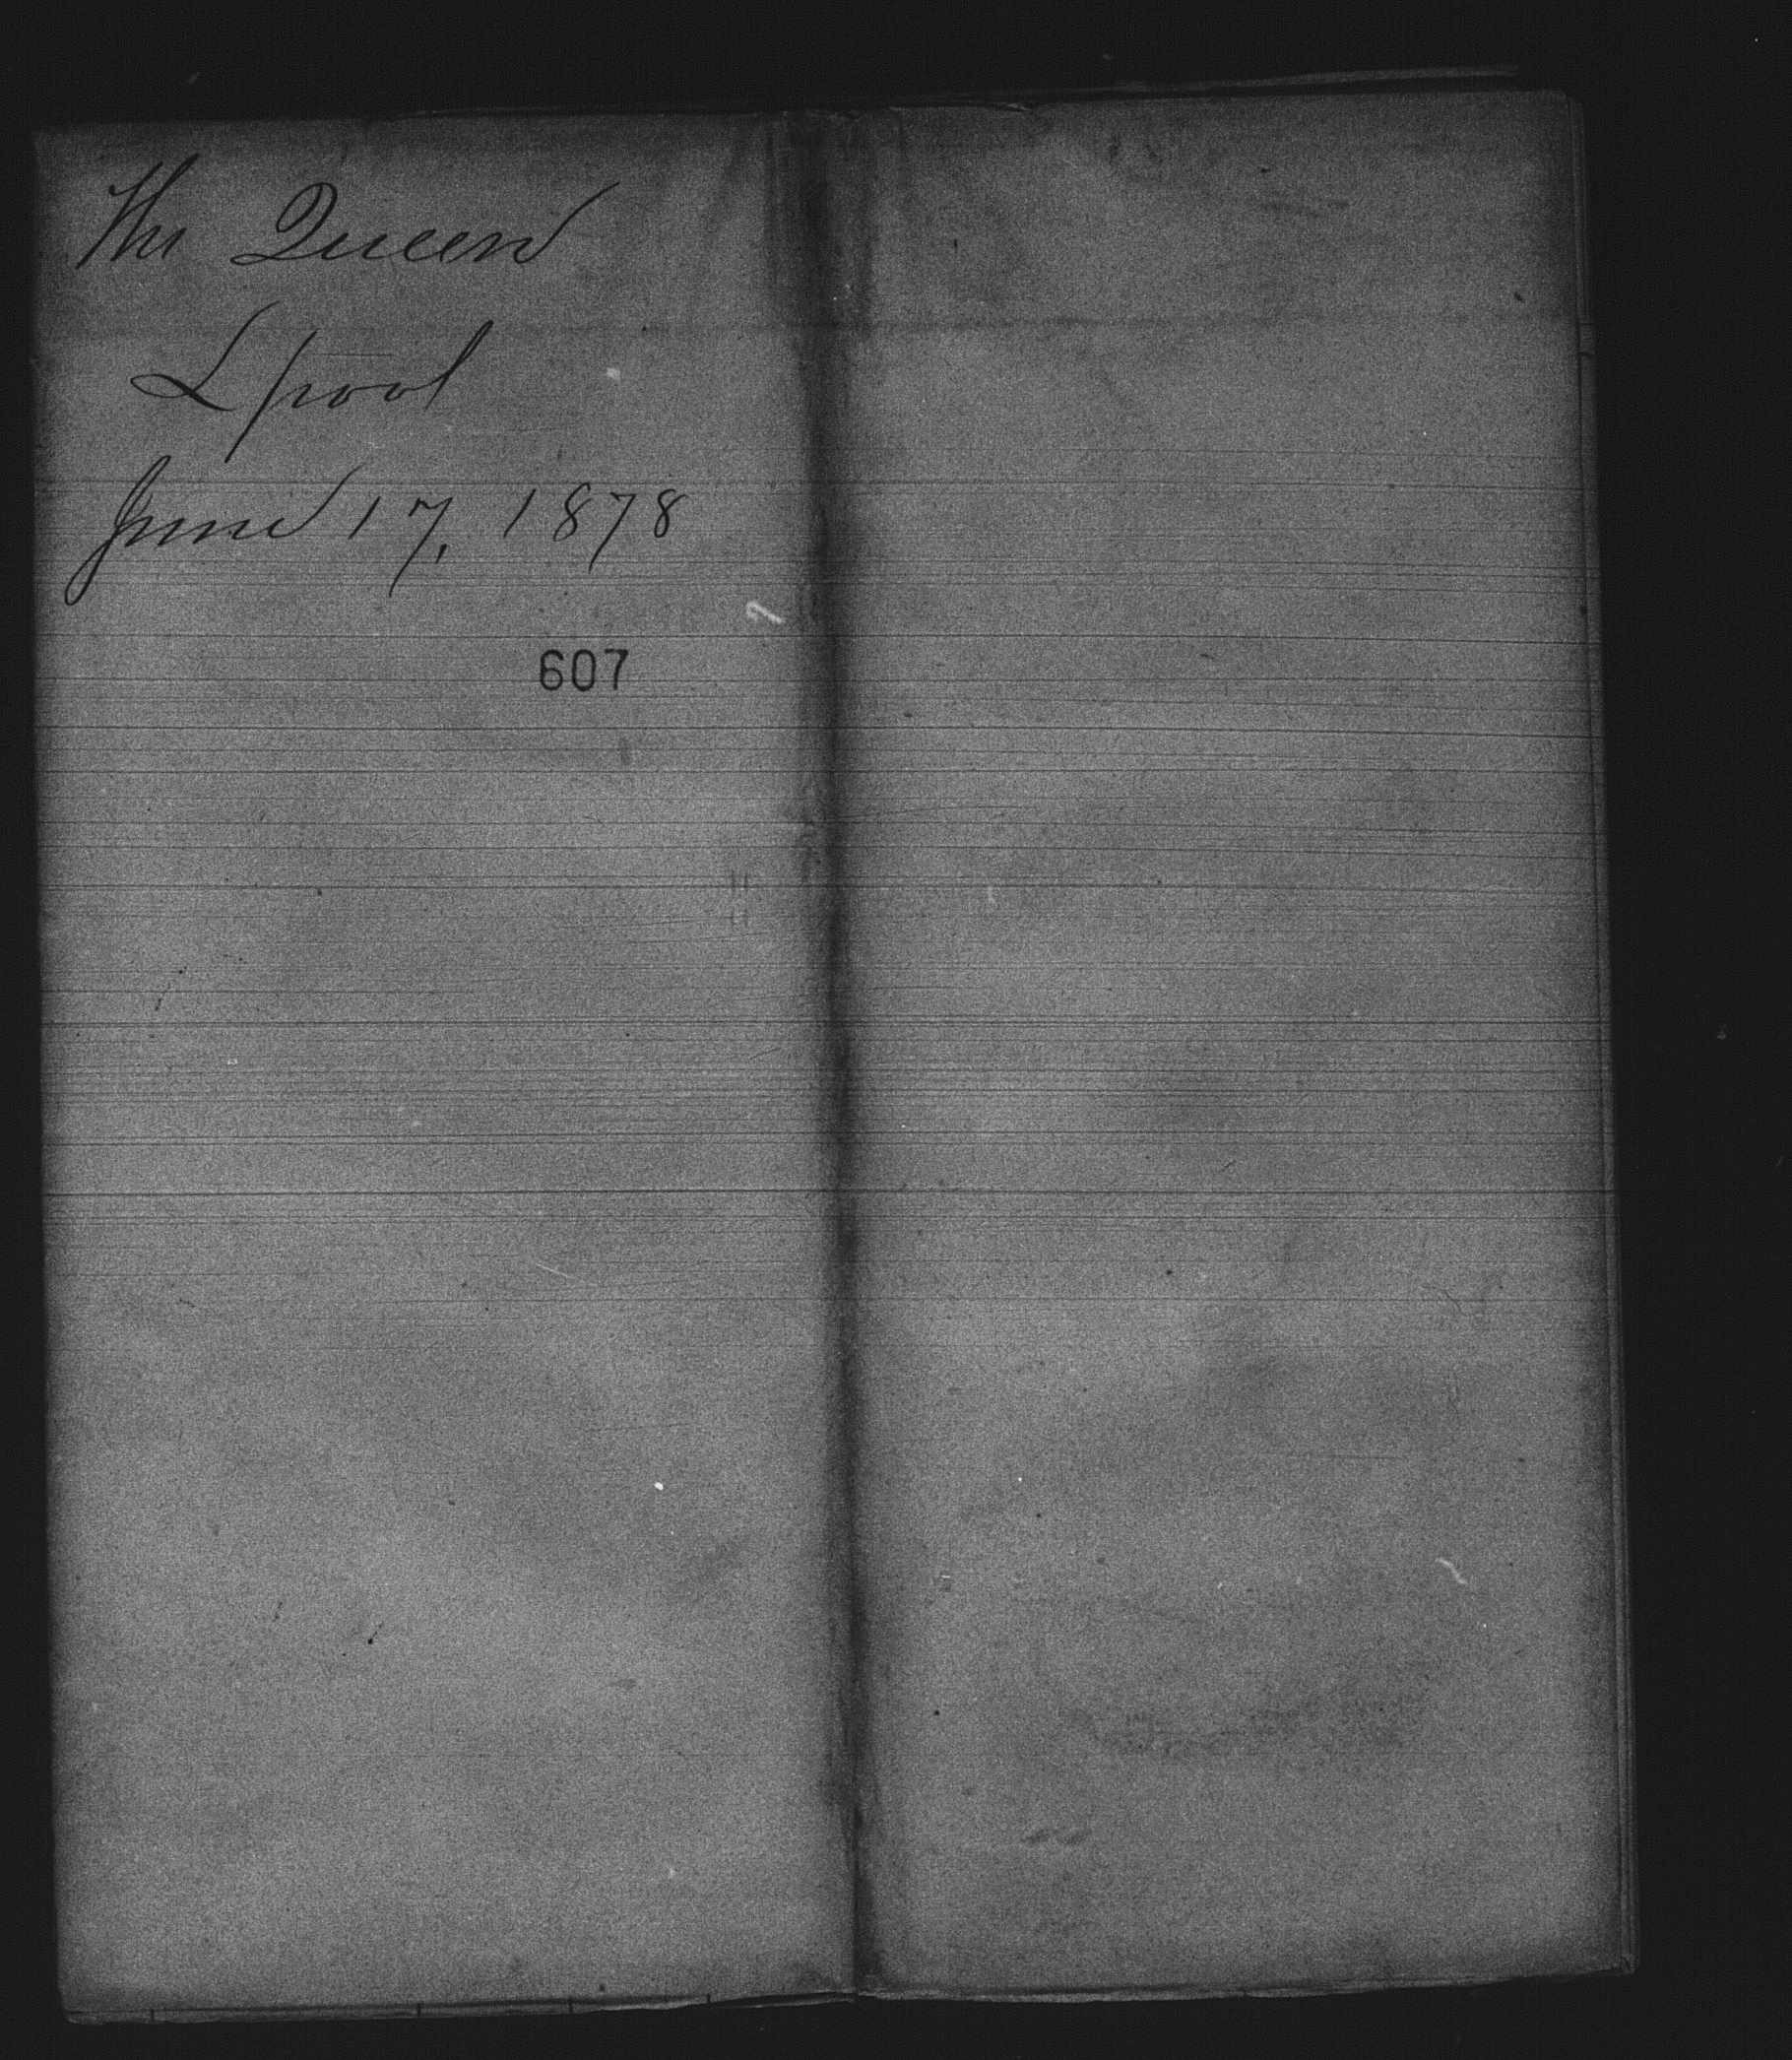 The Queen
L pool
June 17, 1878
607